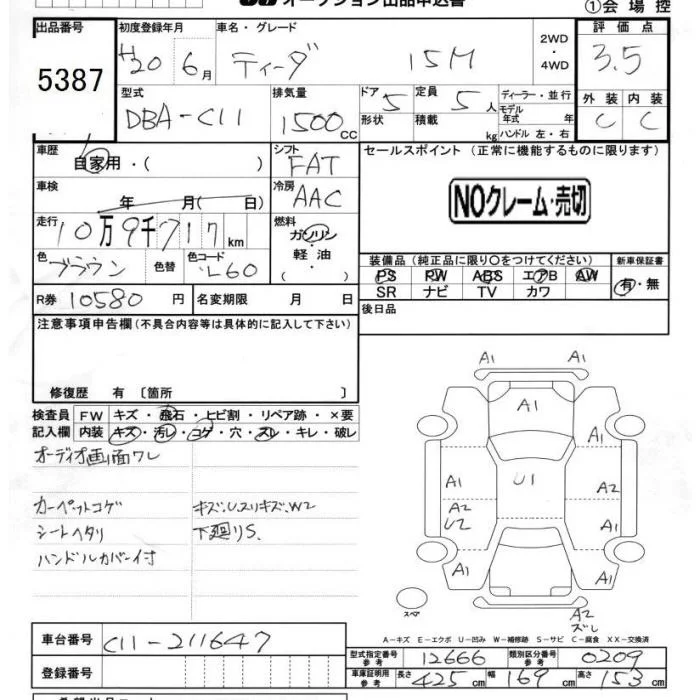 オークション出品申込書
①会場控
出品番号 初度登録年月 車名・グレード 2WD・4WD 評価点
5387
H20 6月 ティーダ 15M 3.5
外装 内装
C C
型式 排気量 ドア 定員 ディーラー・並行
DBA-C11 1500CC 5 5人
モデル年式 年
形状 積載 kg ハンドル 左・右
車歴 シフト セールスポイント (正常に機能するものに限ります)
自家用・( ) FAT
車検 冷房
年 月( 日) AAC
NOクレーム・売切
走行 燃料
10万9千717km ガソリン・軽油・( )
色 色替 色コード
ブラウン L60
装備品 (純正品に限り○をつけてください) 新車保証書
PS PW ABS エアB AW 有・無
SR ナビ TV カワ
R券 10580円 名変期限 月 日 後日品
注意事項申告欄(不具合内容等は具体的に記入して下さい)
修復歴 有 〔箇所 〕
検査員記入欄 FW キズ・飛石・ヒビ割・リペア跡・×要
内装 キズ・汚レ・コゲ・穴・スレ・キレ・破レ
オーディオ画面ワレ
カーペットコゲ キズ.U.スリキズ.W2
シートヘタリ 下廻りS.
ハンドルカバー付
A1 A1
A1
U1
A1 A2
A2 U2 A1
A1 A2
スペア
A2 ズレ
A-キズ E-エクボ U-凹み W-補修跡 S-サビ C-腐食 XX-交換済
車台番号 C11-211647
登録番号
型式指定番号参考 12666 類別区分番号参考 0209
車庫証明用参考 長さ 425cm 幅 169cm 高さ 153cm